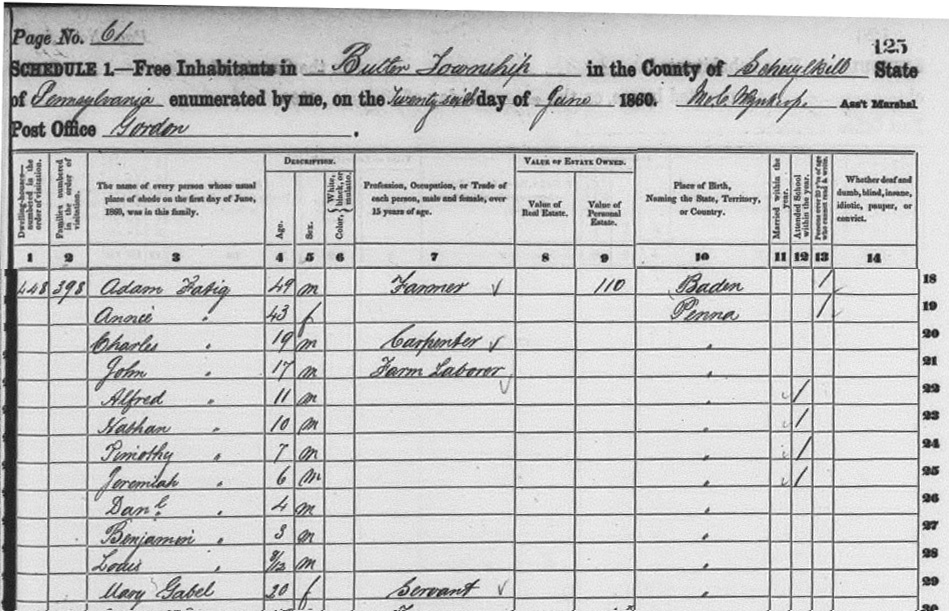 Page No. 61
125
SCHEDULE 1.—Free Inhabitants in Butler Township in the County of Schuylkill State
of Pennsylvania enumerated by me, on the Twenty sixth day of June 1860. Ass't Marshal
Post Office Gordon.
DESCRIPTION. VALUE OF ESTATE OWNED.
Dwelling-houses—numbered in the order of visitation. Families numbered in the order of visitation. The name of every person whose usual place of abode on the first day of June, 1860, was in this family. Age. Sex. Color, { White, black, or mulatto. Profession, Occupation, or Trade of each person, male and female, over 15 years of age. Value of Real Estate. Value of Personal Estate. Place of Birth, Naming the State, Territory, or Country. Married within the year. Attended School within the year. Persons over 20 y'rs of age who cannot read & write. Whether deaf and dumb, blind, insane, idiotic, pauper, or convict.
1 2 3 4 5 6 7 8 9 10 11 12 13 14
448 398 Adam Fatig 49 m Farmer ✓ 110 Baden / 18
Annie " 43 f Penna / 19
Charles " 19 m Carpenter ✓ " 20
John " 17 m Farm Laborer ✓ " 21
Alfred " 11 m " / 22
Nathan " 10 m " / 23
Timothy " 7 m " / 24
Jeremiah " 6 m " / 25
Danl " 4 m " 26
Benjamin " 3 m " 27
Louis " 8/12 m " 28
Mary Gabel 20 f Servant ✓ " 29